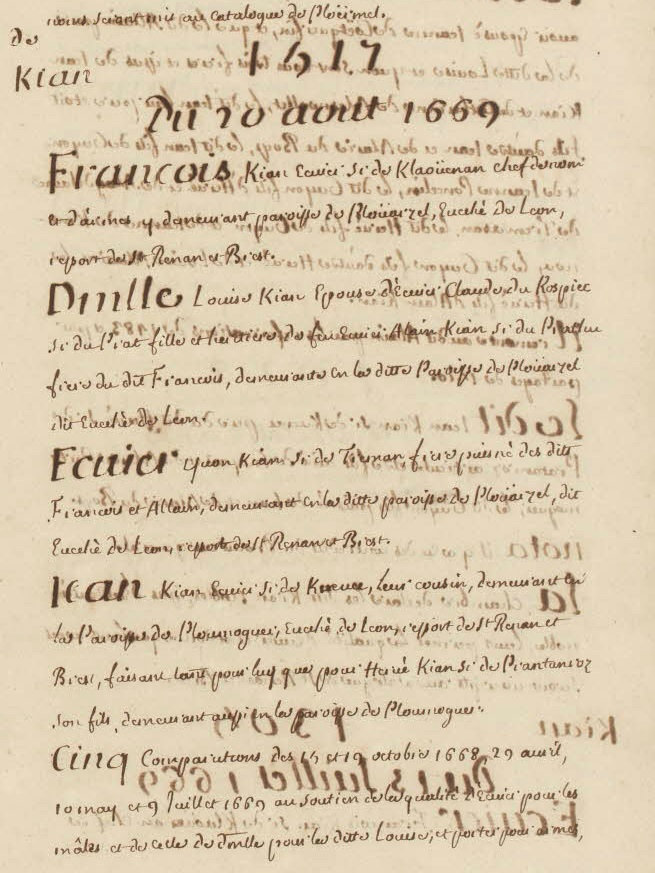 noms seront mis au catalogue de Ploërmel.
de
Kian
1517
Du 20 aout 1669
Francois Kian Ecuier Sr de Klaoüenan chef de nom
et d'armes, y demeurant paroisse de Ploüarzel, Eveché De Leon,
ressort de St Renan et Brest.
Dmlle Louise Kian Epouse d'Ecuier Claude du Rospiec
Sr du Prat fille et heritiere de feu Ecuier Alain Kian, Sr du
frere du dit Francois, demeurante en la ditte Paroisse de Ploüarzel
dit Eveché de Leon.
Ecuier Yuon Kian Sr de frere puisné des dits
Francois et Allain, demeurant en la ditte paroisse de Ploüarzel, dit
Eveché de Leon, ressort de St Renan et Brest.
Jean Kian Ecuier Sr de leur cousin, demeurant en
la Paroisse de Ploumoguer, Eveché de Leon, ressort de St Renan et
Brest, faisant tant pour luy que pour Hervé Kian Sr de
son fils, demeurant aussi en la paroisse de Ploumoguer.
Cinq Comparutions des 15 et 19 octobre 1668, 29 avril,
10 may et 9 Juillet 1669 au soutien de la qualité d'Ecuier pour les
mâles et de celle de Dmlle pour la ditte Louise, et porter pour armes,